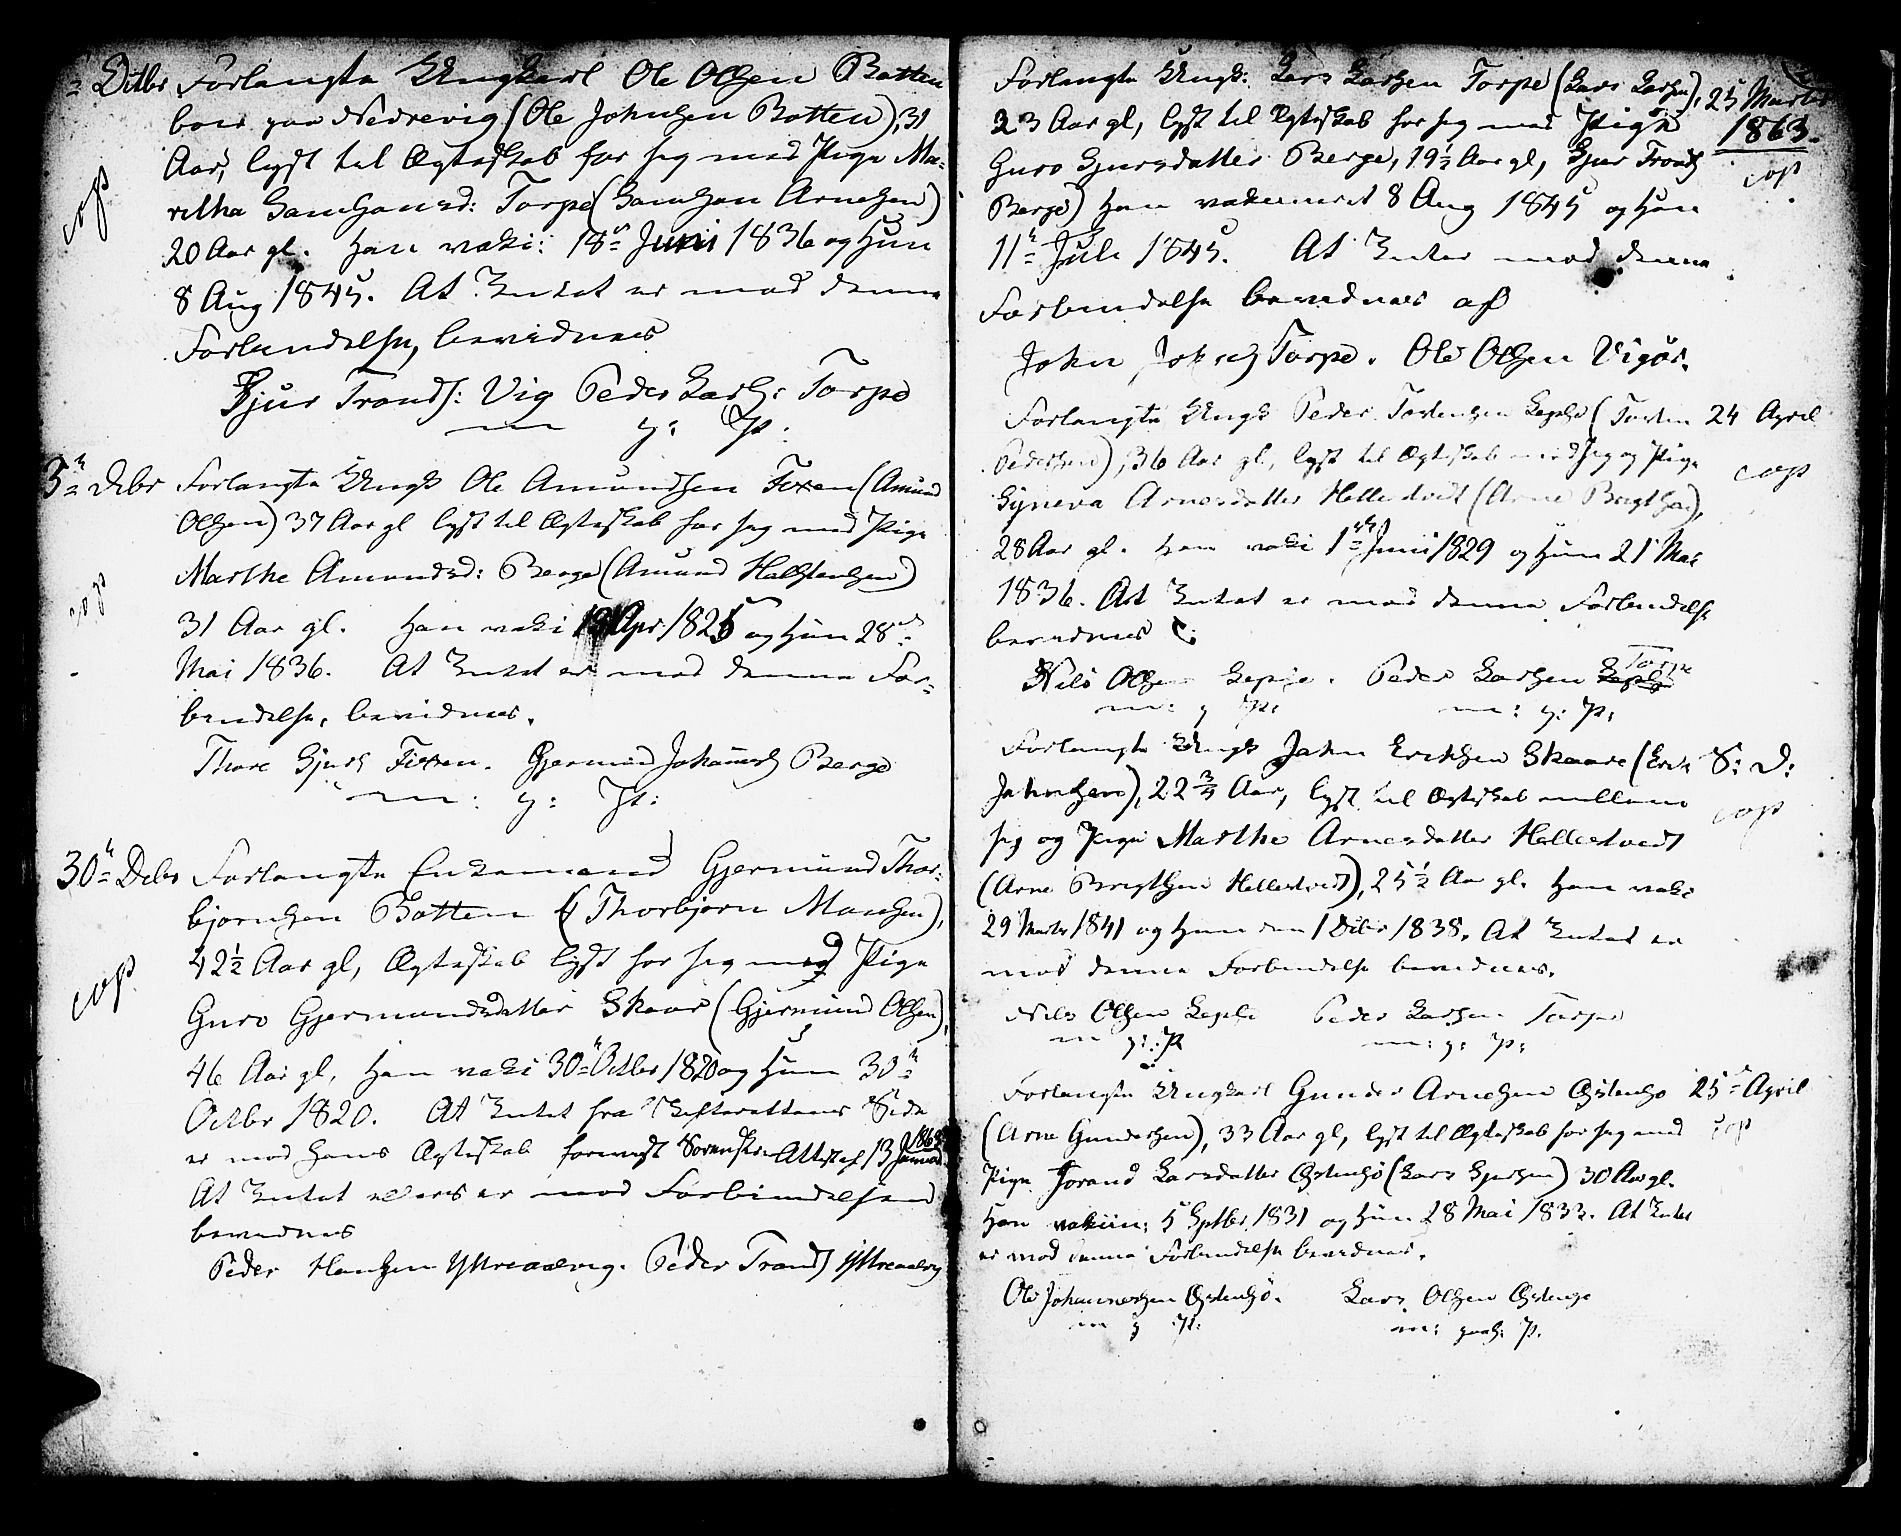 Ditbr Forlangte Ungkarl Ole Olsen Botten
boer paa Nedrevig (Ole Johnsen Botten), 31
Aar, lyst til Ægteskab for sig med Pige Ma-
cop
ritha Samsonsd: Torpe (Samson Arnesen)
20 Aar gl. Han vaki: 18de Juni 1836 og Hun
8 Aug 1845. At Intet er mod denne
Forbindelse, bevidnes
Sjur Tronds: Vig Peder Lars: Torpe
m p:
3de Debr Forlangte Ungk Ole Amundsen Fixen (Amund
Olsen) 37 Aar gl lyst til Ægteskab for sig med Pige
cop
Marthe Amundsd: Berge (Amund Halstensen)
31 Aar gl. Han vaki Apr 1825 og Hun 28de
Mai 1836. At Intet er mod denne For-
bindelse, bevidnes.
Thore Sjurs Fixen. Gjermund Johannes Berge
m: g: P:
30te Debr Forlangte Enkemand Gjermund Thor-
bjørnsen Botten (Thorbjørn Monsen),
42½ Aar gl, Ægteskab lyst for sig med Pige
cop
Guro Gjermundsdatter Skaar (Gjermund Olsen),
46 Aar gl, Han vaki 30te Octbr 1820 og Hun 30te
Octbr 1820. At Intet fra Skifterettens Side
er mod hans Ægteskab forevist Sorenskr. Attest af 13 Januar 1863
At Intet ellers er mod Forbindelsen
bevidnes
Peder Hansen Ytreaalvig. Peder Tronds Ytreaalvig
Forlangte Ungk: Lars Larsen Torpe (Lars Larsen), 25 Marts
23 Aar gl, lyst til Ægteskab for sig med Pige 1863.
Guro Sjursdatter Berge, 19½ Aar gl, Sjur Tronds cop
Berge) Han vaccineret 8 Aug 1845 og Hun
11te Juli 1845. At Intet mod denne
Forbindelse bevidnes af
John Torpe. Ole Olsen Vigør.
Forlangte Ungk Peder Torstensen Lepsø (Torsten 24 April
Pedersen), 36 Aar gl, lyst til Ægteskab med sig og Pige cop
Syneva Arnesdatter Hellestvedt (Arne Brigtsen),
28 Aar gl. Han vaki 1ste Juni 1829 og Hun 21 Mai
1836. At Intet er mod denne Forbindelse
bevidnes
Nils Olsen Lepsø. Peder Larsen Torpe
m: g P: m: g: P:
Forlangte Ungk John Eriksen Skaare (Erik S: D:
Johnsen), 22¾ Aar, lyst til Ægteskab mellem cop
sig og Pige Marthe Arnesdatter Hellestvedt
(Arne Brigtsen Hellestvedt), 25½ Aar gl. Han vaki
29 Marts 1841 og Hun den 1 Debr 1838. At Intet er
mod denne Forbindelse bevidnes.
Nils Olsen Lepsø Peder Larsen Torpe
m g: P m: g: P:
Forlangte Ungkarl Gunder Arnesen Østensø 25de April
(Arne Gundersen), 33 Aar gl, lyst til Ægteskab for sig med cop
Pige Jorand Larsdatter Østensø (Lars Sjursen) 30 Aar gl.
Han vakiin: 5 Septbr 1831 og Hun 28 Mai 1833. At Intet
er mod denne Forbindelse bevidnes.
Ole Johannessen Østensø. Lars Olsen Østensø
m g P: m: paah: P.